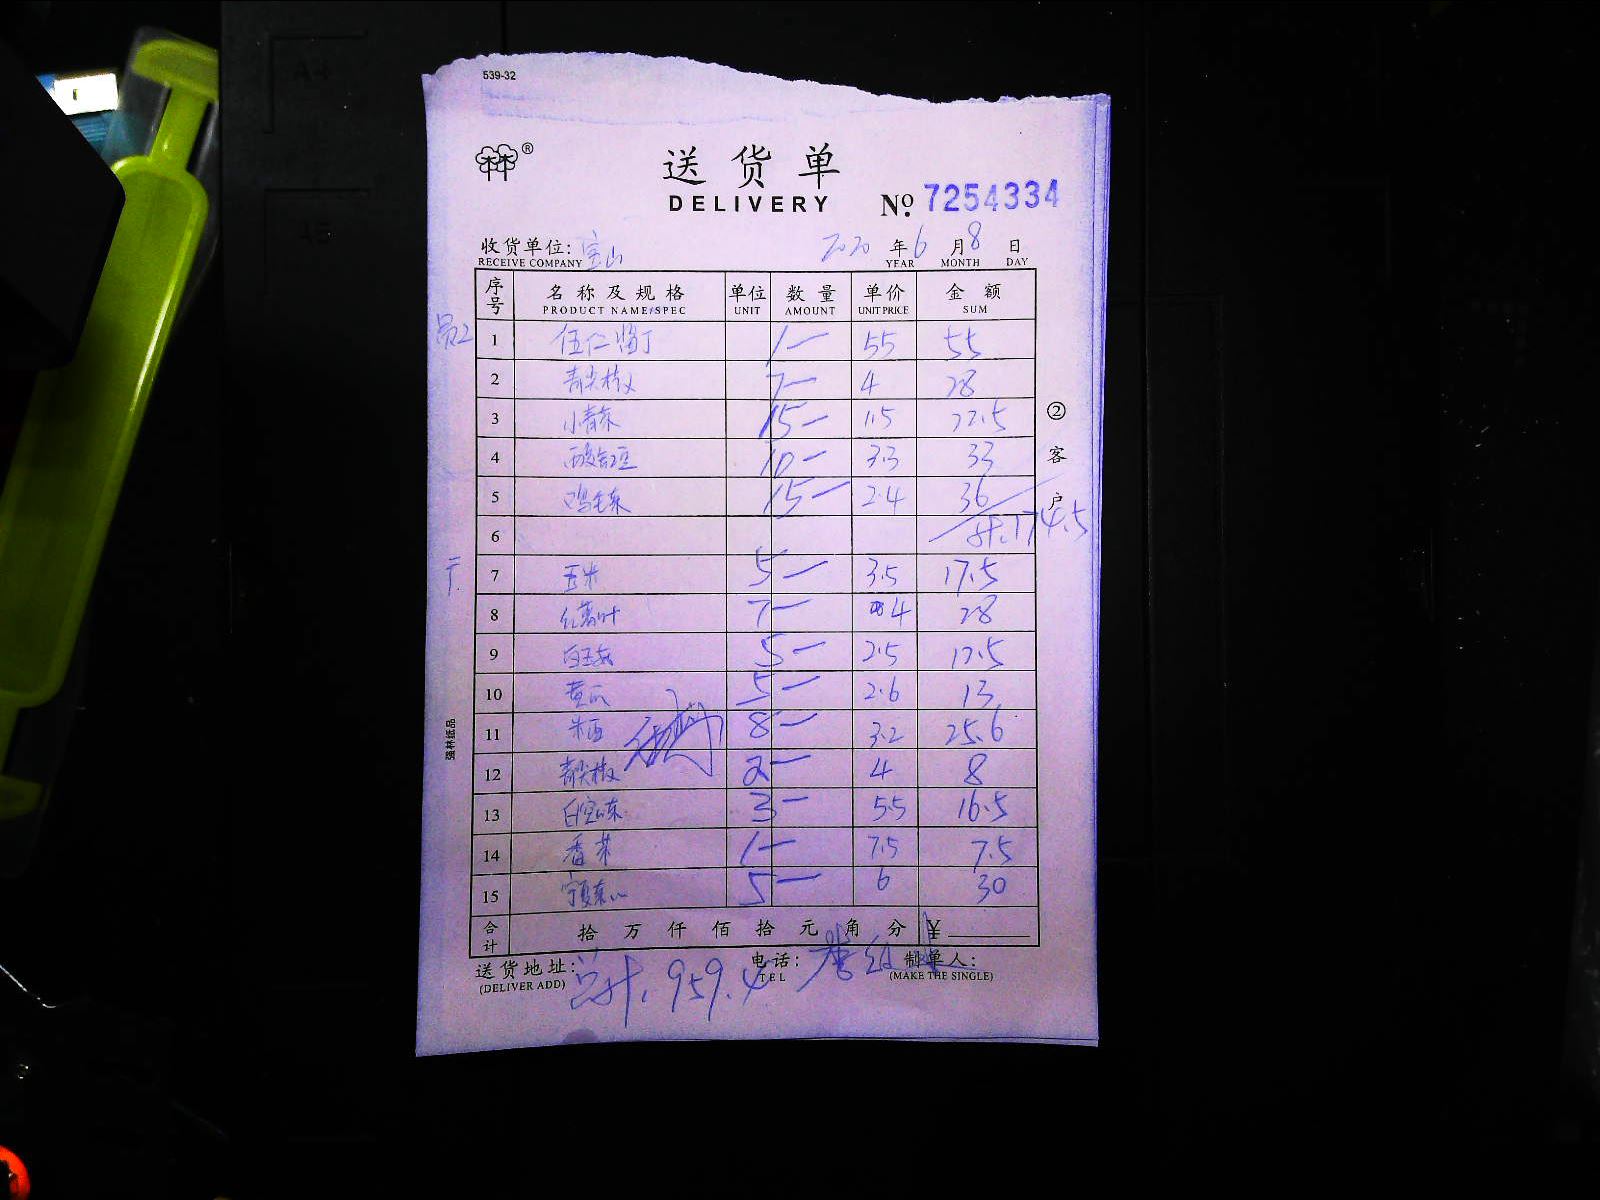 539-32
送货单
DELIVERY
№ 7254334
收货单位: 宝山 2020 年 6 月 8 日
RECEIVE COMPANY YEAR MONTH DAY
序号 名称及规格 单位 数量 单价 金额
PRODUCT NAME/SPEC UNIT AMOUNT UNIT PRICE SUM
员工 1 伍仁酱丁 1 55 55
2 青尖椒 7 4 28
3 小青菜 15 1.5 22.5
4 酸豇豆 10 3.3 33
5 鸡毛菜 15 2.4 36
6 计.174.5
7 玉米 5 3.5 17.5
8 红薯叶 7 4 28
9 5 2.5 12.5
10 黄瓜 5 2.6 13
11 8 3.2 25.6
12 青尖椒 2 4 8
13 3 5.5 16.5
14 香菜 1 7.5 7.5
15 宁夏菜心 5 6 30
合计 拾 万 仟 佰 拾 元 角 分 ¥
送货地址: 电话: 制单人:
(DELIVER ADD) TEL (MAKE THE SINGLE)
总计.959.4
② 客户
强林纸品